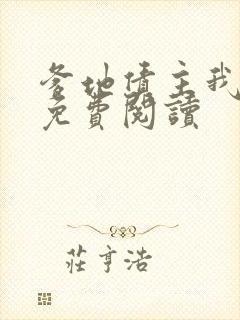 爹地债主我
免費閱讀
莊亨浩